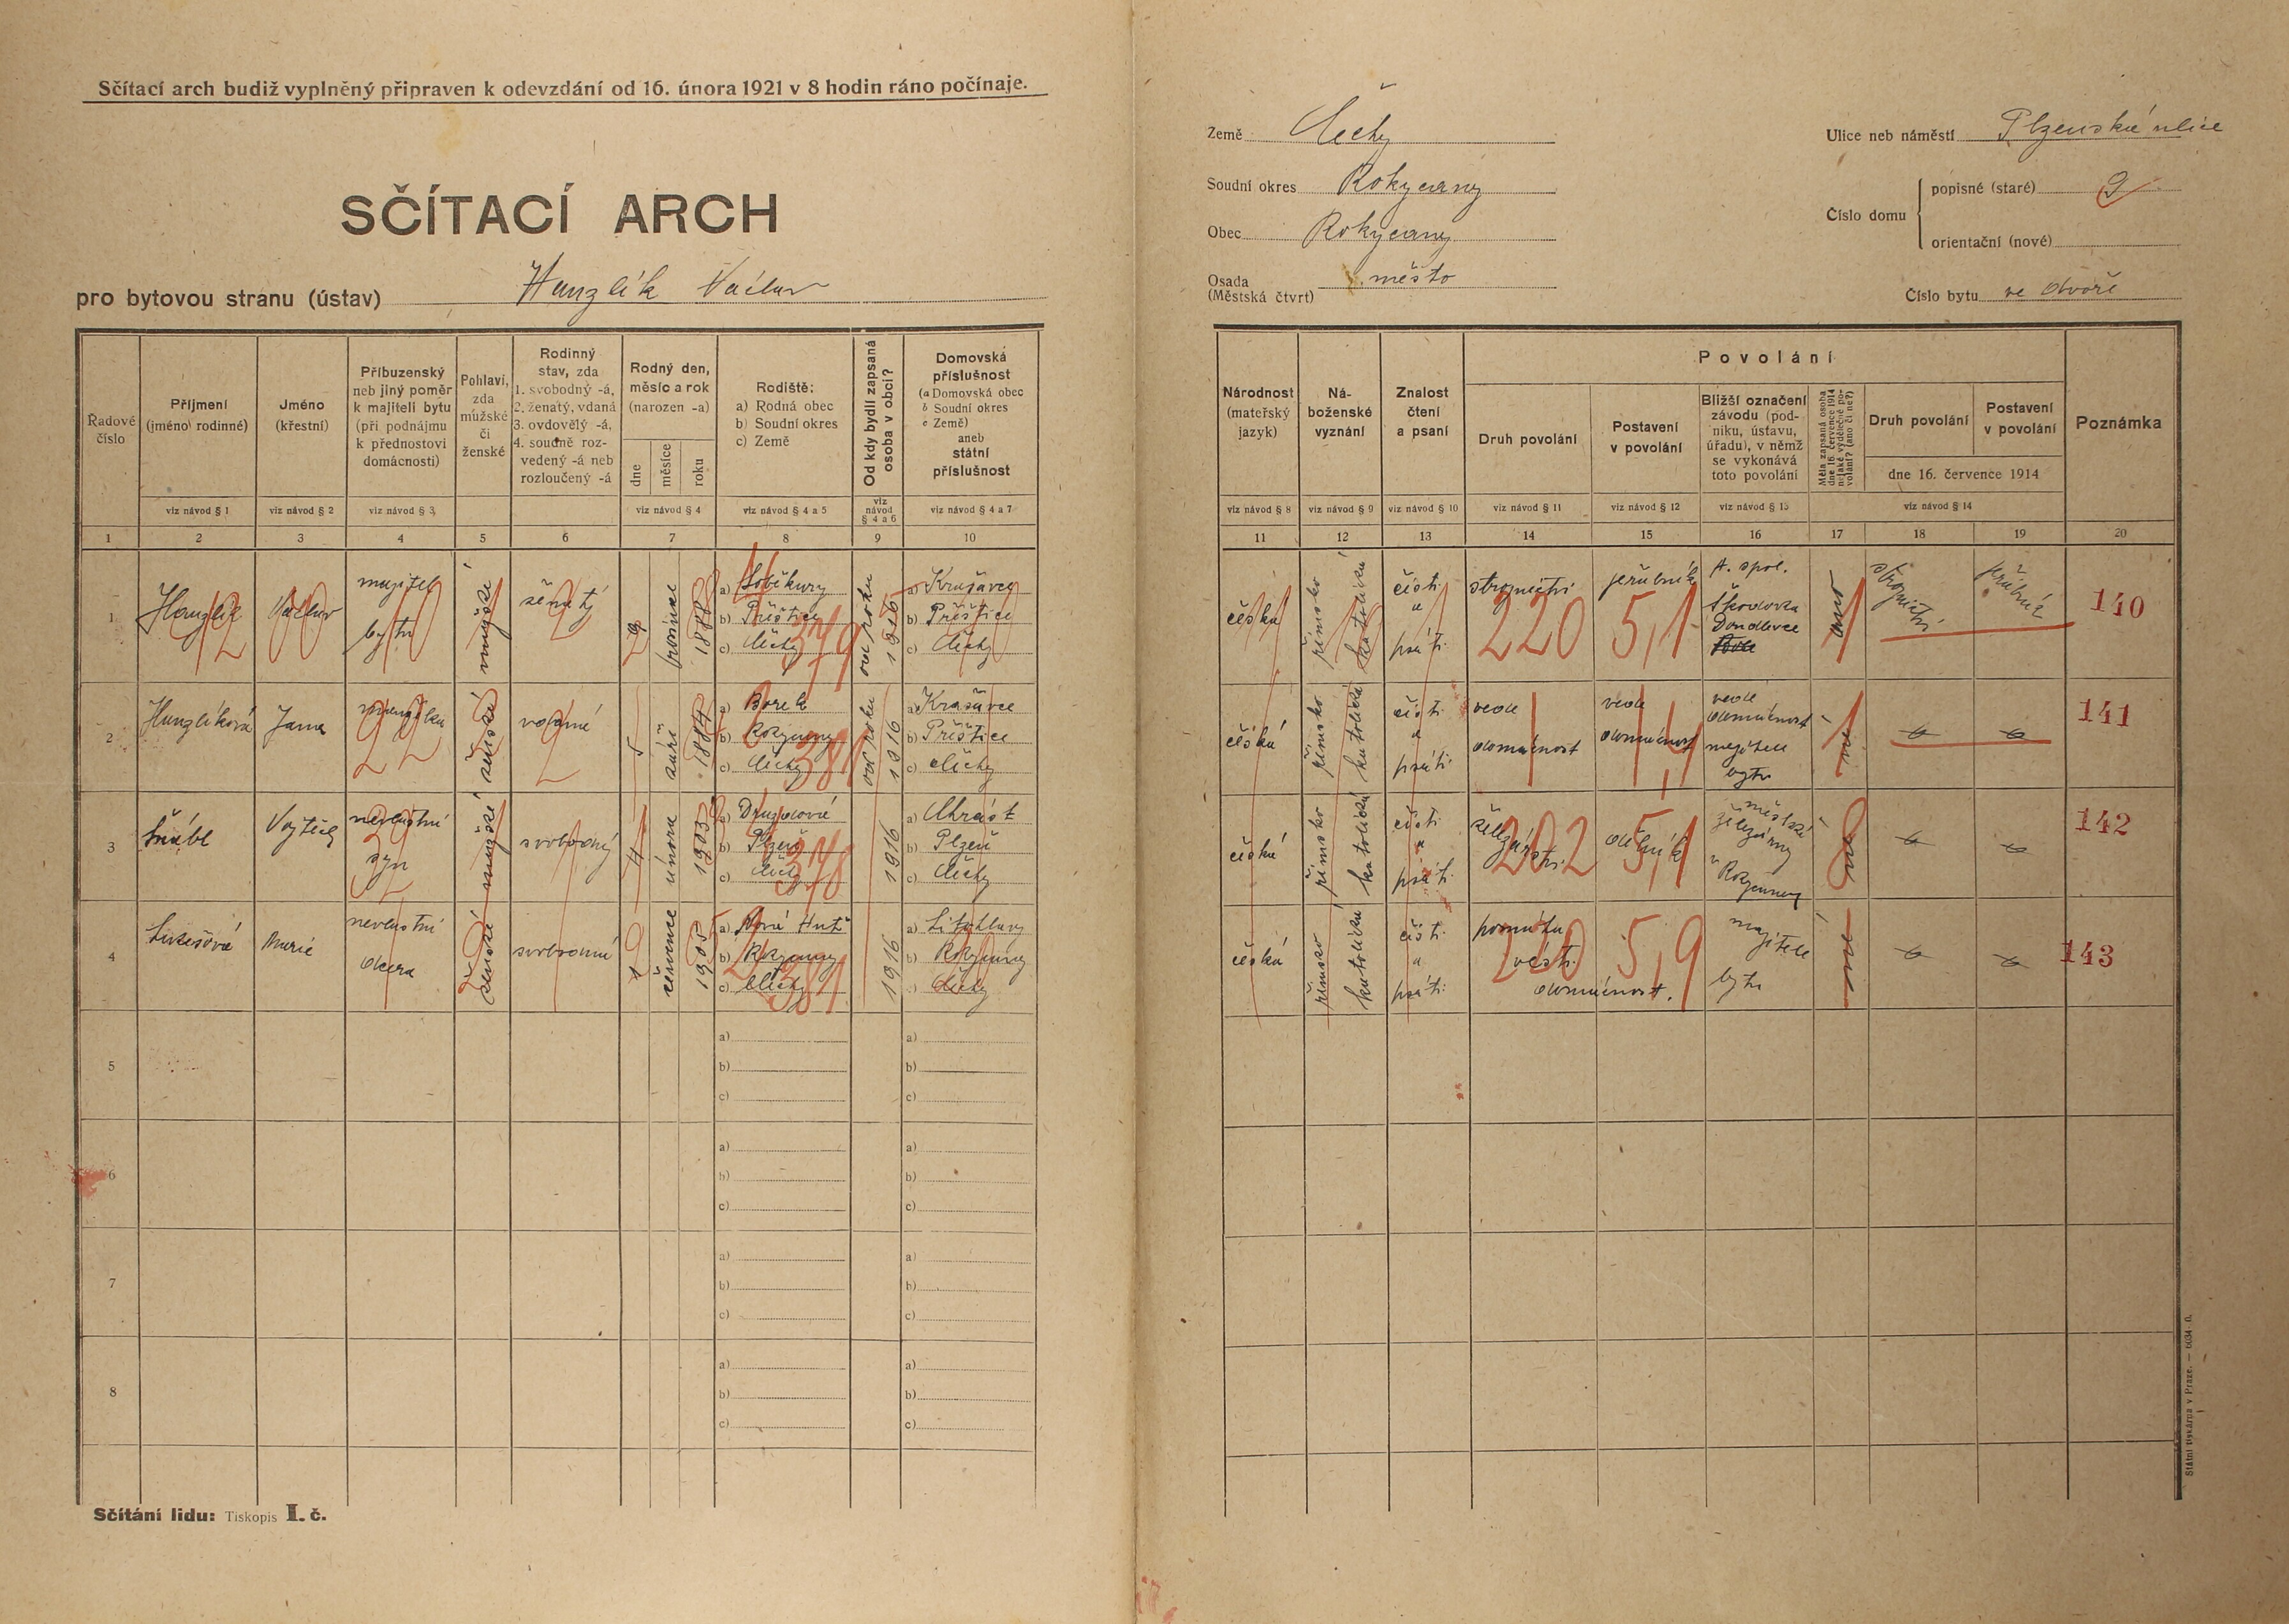 Sčítací arch budiž vyplněný připraven k odevzdání od 16. února 1921 v 8 hodin ráno počínaje.
SČÍTACÍ ARCH
pro bytovou stranu (ústav) Hanzlík Václav
Země Čechy
Soudní okres Rokycany
Obec Rokycany
Osada (Městská čtvrt) město
Ulice neb náměstí Plzenská ulice
Číslo domu
popisné (staré) 9
orientační (nové)
Číslo bytu ve dvoře
Řadové číslo
Příjmení (jméno rodinné)
Jméno (křestní)
Příbuzenský neb jiný poměr k majiteli bytu (při podnájmu k přednostovi domácnosti)
Pohlaví, zda mužské či ženské
Rodinný stav, zda 1. svobodný -á, 2. ženatý, vdaná 3. ovdovělý -á, 4. soudně rozvedený -á neb rozloučený -á
Rodný den, měsíc a rok (narozen -a)
dne
měsíce
roku
Rodiště:
a) Rodná obec
b) Soudní okres
c) Země
Od kdy bydlí zapsaná osoba v obci?
Domovská příslušnost
(a Domovská obec
b Soudní okres
c Země)
aneb státní příslušnost
viz návod § 1
viz návod § 2
viz návod § 3
viz návod § 4
viz návod § 4 a 5
viz návod § 4 a 6
viz návod § 4 a 7
1 2 3 4 5 6 7 8 9 10
Povolání
Národnost (mateřský jazyk)
Náboženské vyznání
Znalost čtení a psaní
Druh povolání
Postavení v povolání
Bližší označení závodu (podniku, ústavu, úřadu), v němž se vykonává toto povolání
Měla zapsaná osoba dne 16. července 1914 nějaké výdělečné povolání? (ano či ne?)
Druh povolání
Postavení v povolání
dne 16. července 1914
Poznámka
viz návod § 8
viz návod § 9
viz návod § 10
viz návod § 11
viz návod § 12
viz návod § 13
viz návod § 14
11 12 13 14 15 16 17 18 19 20
1 Hanzlík Václav
majitel bytu
mužské
ženatý
prosince 1888
a)
b) Přeštice
c) Čechy
379
od roku 1916
a)
b) Přeštice
c) Čechy
česká
římsko katolické
čísti a psáti
strojnictví
220
jeřábník
5,1
A. spol. Škodovka Doudlevce
ano
strojnictví
jeřábník
140
2 Hanzlíková Jana
manželka
ženské
vdaná
5 září 1884
a) Borek
b) Rokycany
c) Čechy
381
od roku 1916
a)
b) Přeštice
c) Čechy
česká
římsko katolická
čísti a psáti
vede domácnost
vede domácnost
vede domácnost majitele bytu
ne
141
3 Vojtěch
nevlastní syn
mužské
svobodný
4 února 1903
a)
b) Plzeň
c) Čechy
378
1916
a) Chrást
b) Plzeň
c) Čechy
česká
římsko katolická
čísti a psáti
202
dělník
5,1
městské železárny v Rokycanech
ne
142
4 Marie
nevlastní dcera
ženské
svobodná
července 1905
a) Nová Huť
b) Rokycany
c) Čechy
381
1916
a) Litohlavy
b) Rokycany
c) Čechy
česká
římsko katolická
čísti a psáti
pomáhá vésti domácnost.
5,9
majitele bytu
ne
143
5
a)
b)
c)
a)
b)
c)
6
a)
b)
c)
a)
b)
c)
7
a)
b)
c)
a)
b)
c)
8
a)
b)
c)
a)
b)
c)
Sčítání lidu: Tiskopis I. č.
Státní tiskárna v Praze. — 6034-0.